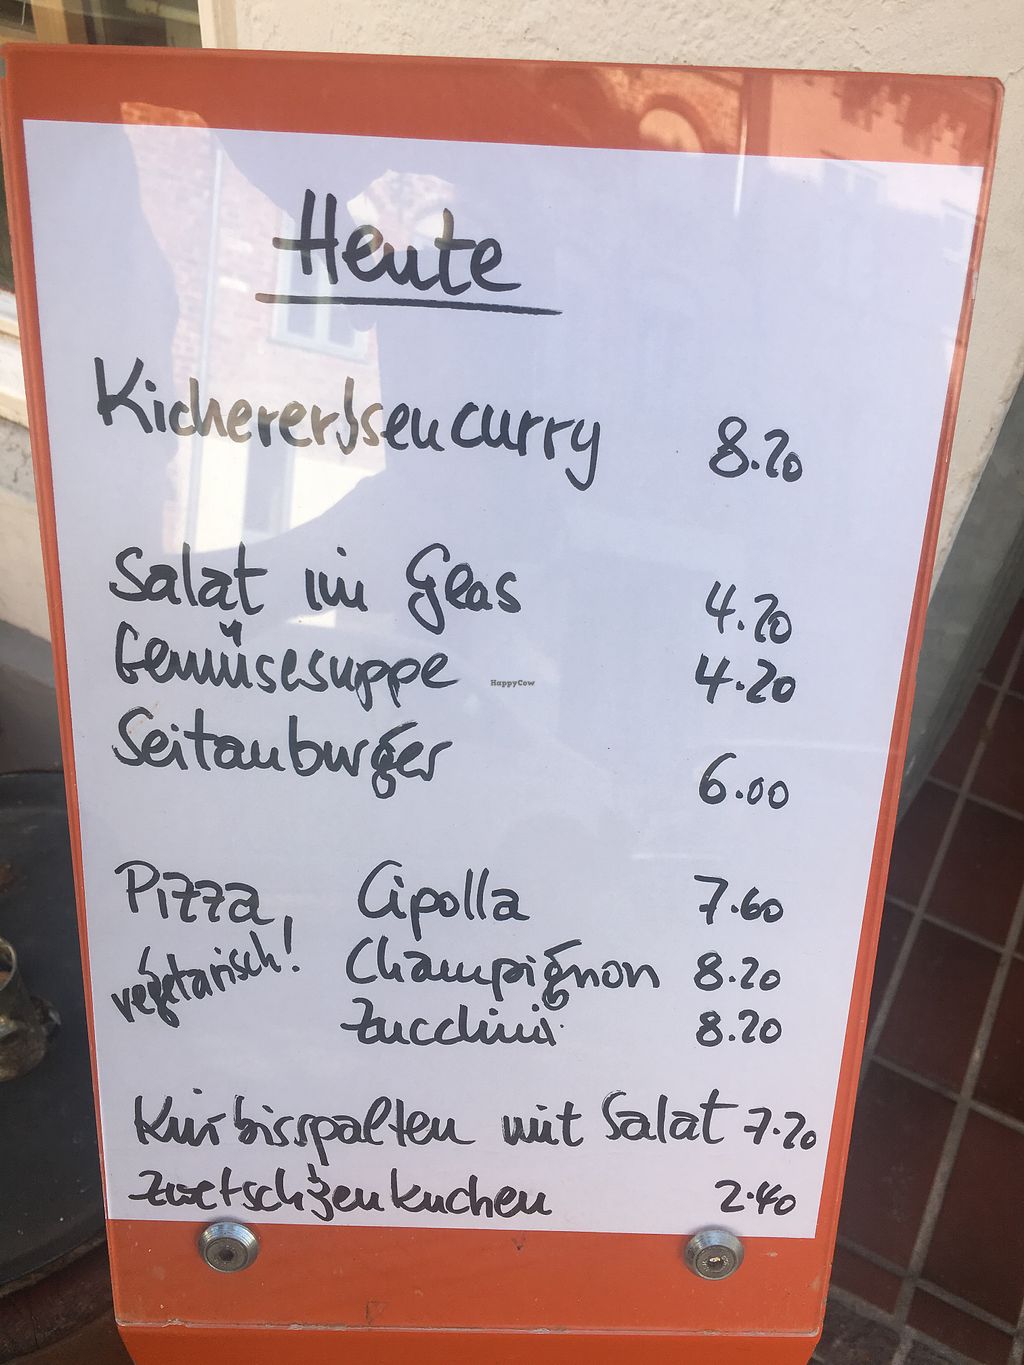 Heute
Kichererbsencurry 8.20
Salat im Glas 4.20
Gemüsesuppe 4.20
Seitanburger 6.00
Pizza, Cipolla 7.60
vegetarisch! Champignon 8.20
Zucchini 8.20
Kürbisspalten mit Salat 7.20
Zwetschgenkuchen 2.40
HappyCow